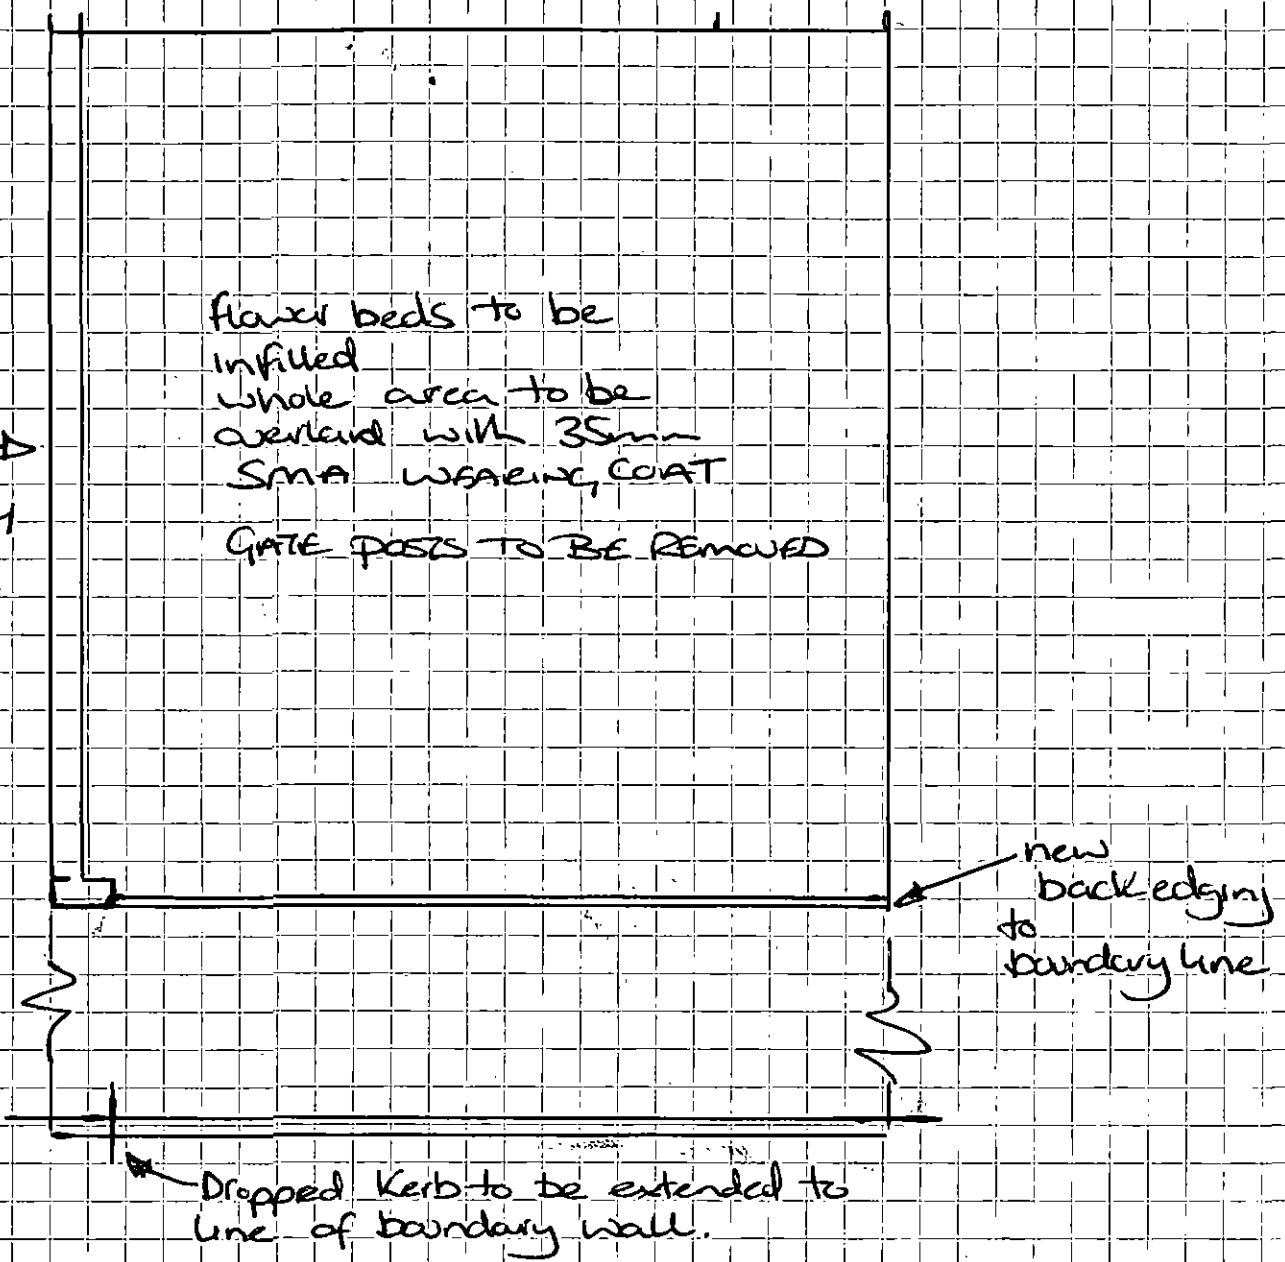 flower beds to be
infilled
whole area to be
overlaid with 35mm
SMA WEARING COAT
GATE POSTS TO BE REMOVED
new
back edging
to
boundary line
Dropped Kerb to be extended to
line of boundary wall.